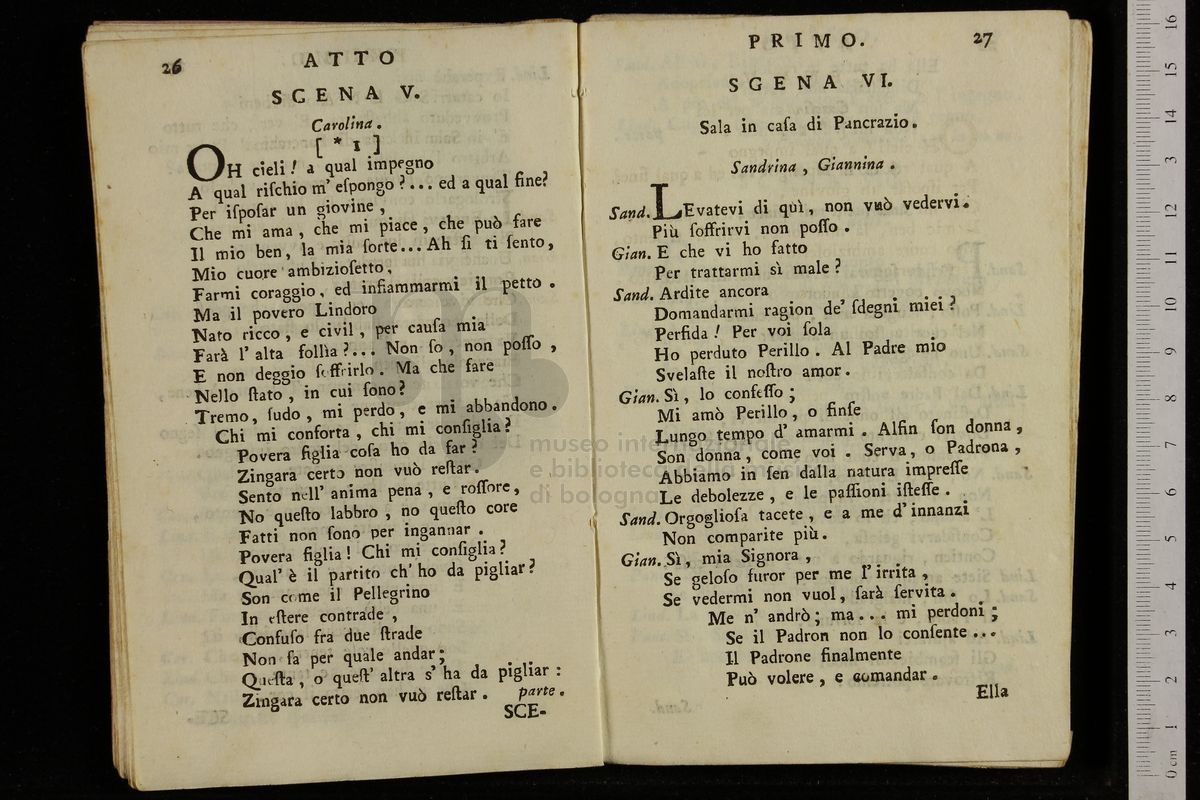 26
ATTO
SCENA V.
Carolina.
[ * 1 ]
OH cieli! a qual impegno
A qual riſchio m' eſpongo?... ed a qual fine?
Per iſpoſar un giovine,
Che mi ama, che mi piace, che può fare
Il mio ben, la mia ſorte... Ah ſì ti ſento,
Mio cuore ambizioſetto,
Farmi coraggio, ed infiammarmi il petto.
Ma il povero Lindoro
Nato ricco, e civil, per cauſa mia
Farà l' alta follìa?... Non ſo, non poſſo,
E non deggio ſoffrirlo. Ma che fare
Nello ſtato, in cui ſono?
Tremo, ſudo, mi perdo, e mi abbandono.
Chi mi conforta, chi mi conſiglia?
Povera figlia coſa ho da far?
Zingara certo non vuò reſtar.
Sento nell' anima pena, e roſſore,
No queſto labbro, no queſto core
Fatti non ſono per ingannar.
Povera figlia! Chi mi conſiglia?
Qual' è il partito ch' ho da pigliar?
Son come il Pellegrino
In eſtere contrade,
Confuſo fra due ſtrade
Non ſa per quale andar;
Queſta, o queſt' altra s' ha da pigliar:
Zingara certo non vuò reſtar. parte.
SCE-
PRIMO. 27
SGENA VI.
Sala in caſa di Pancrazio.
Sandrina, Giannina.
Sand. LEvatevi di quì, non vuò vedervi.
Più ſoffrirvi non poſſo.
Gian. E che vi ho fatto
Per trattarmi sì male?
Sand. Ardite ancora
Domandarmi ragion de' ſdegni miei?
Perfida! Per voi ſola
Ho perduto Perillo. Al Padre mio
Svelaſte il noſtro amor.
Gian. Sì, lo confeſſo;
Mi amò Perillo, o finſe
Lungo tempo d' amarmi. Alfin ſon donna,
Son donna, come voi. Serva, o Padrona,
Abbiamo in ſen dalla natura impreſſe
Le debolezze, e le paſſioni iſteſſe.
Sand. Orgoglioſa tacete, e a me d' innanzi
Non comparite più.
Gian. Sì, mia Signora,
Se geloſo furor per me l' irrita,
Se vedermi non vuol, ſarà ſervita.
Me n' andrò; ma... mi perdoni;
Se il Padron non lo conſente...
Il Padrone finalmente
Può volere, e comandar.
Ella
museo internazionale
e biblioteca della musica
di bologna
0 cm 1 2 3 4 5 6 7 8 9 10 11 12 13 14 15 16